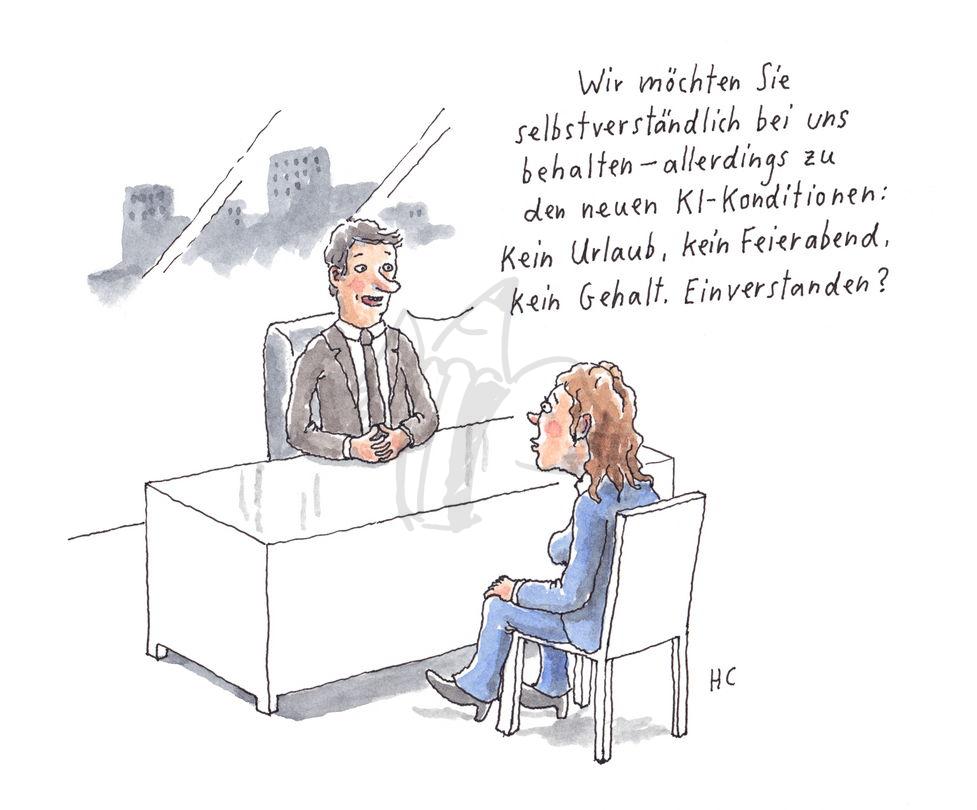 Wir möchten Sie
selbstverständlich bei uns
behalten – allerdings zu
den neuen KI-Konditionen:
Kein Urlaub, kein Feierabend,
kein Gehalt. Einverstanden?
HC